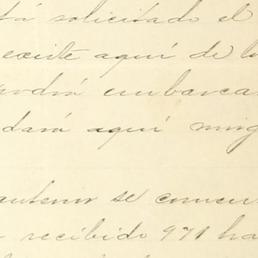 tá solicitado el
existe aquí de l
odrá embarca
dará aquí ning
se conser
recibido 971 ha